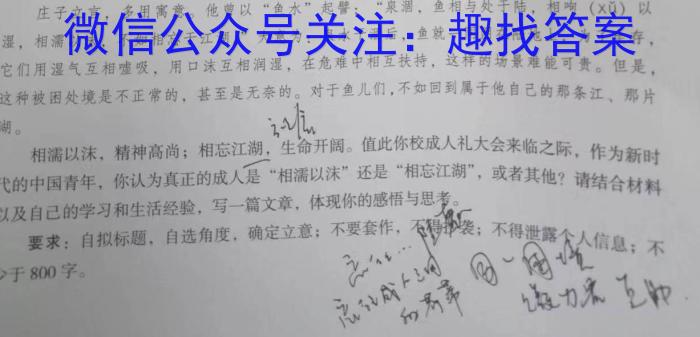 庄子立言，多用寓意。他曾以“鱼水”起譬：“泉涸，鱼相与处于陆，相呴（xǔ）以
湿，相濡
微信公众号关注：趣找答案
它们用湿气互相嘘吸，用口沫互相润湿，在危难中相互扶持，这样的场景难能可贵。但是，
这种被困处境是不正常的，甚至是无奈的。对于鱼儿们，不如回到属于他自己的那条江、那片
湖。
相濡以沫，精神高尚；相忘江湖，生命开阔。值此你校成人礼大会来临之际，作为新时
代的中国青年，你认为真正的成人是“相濡以沫”还是“相忘江湖”，或者其他？请结合材料
以及自己的学习和生活经验，写一篇文章，体现你的感悟与思考。
要求：自拟标题，自选角度，确定立意；不要套作，不得抄袭；不得泄露个人信息；不
少于800字。